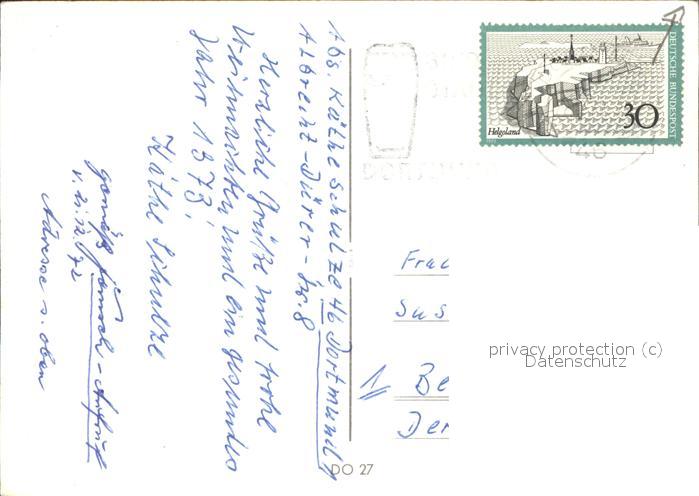 Abs. Käthe Schulze 46 Dortmund 1
Albrecht-Dürer-Str. 8
Herzliche Grüße und frohe
Weihnachten und ein gesundes
Jahr 1973!
Käthe Schulze
gemäß
v. 21.12.72
Adresse s. oben
DEUTSCHE BUNDESPOST
Helgoland
30
Frau
Sus
1 Be
Der
privacy protection (c)
Datenschutz
DO 27